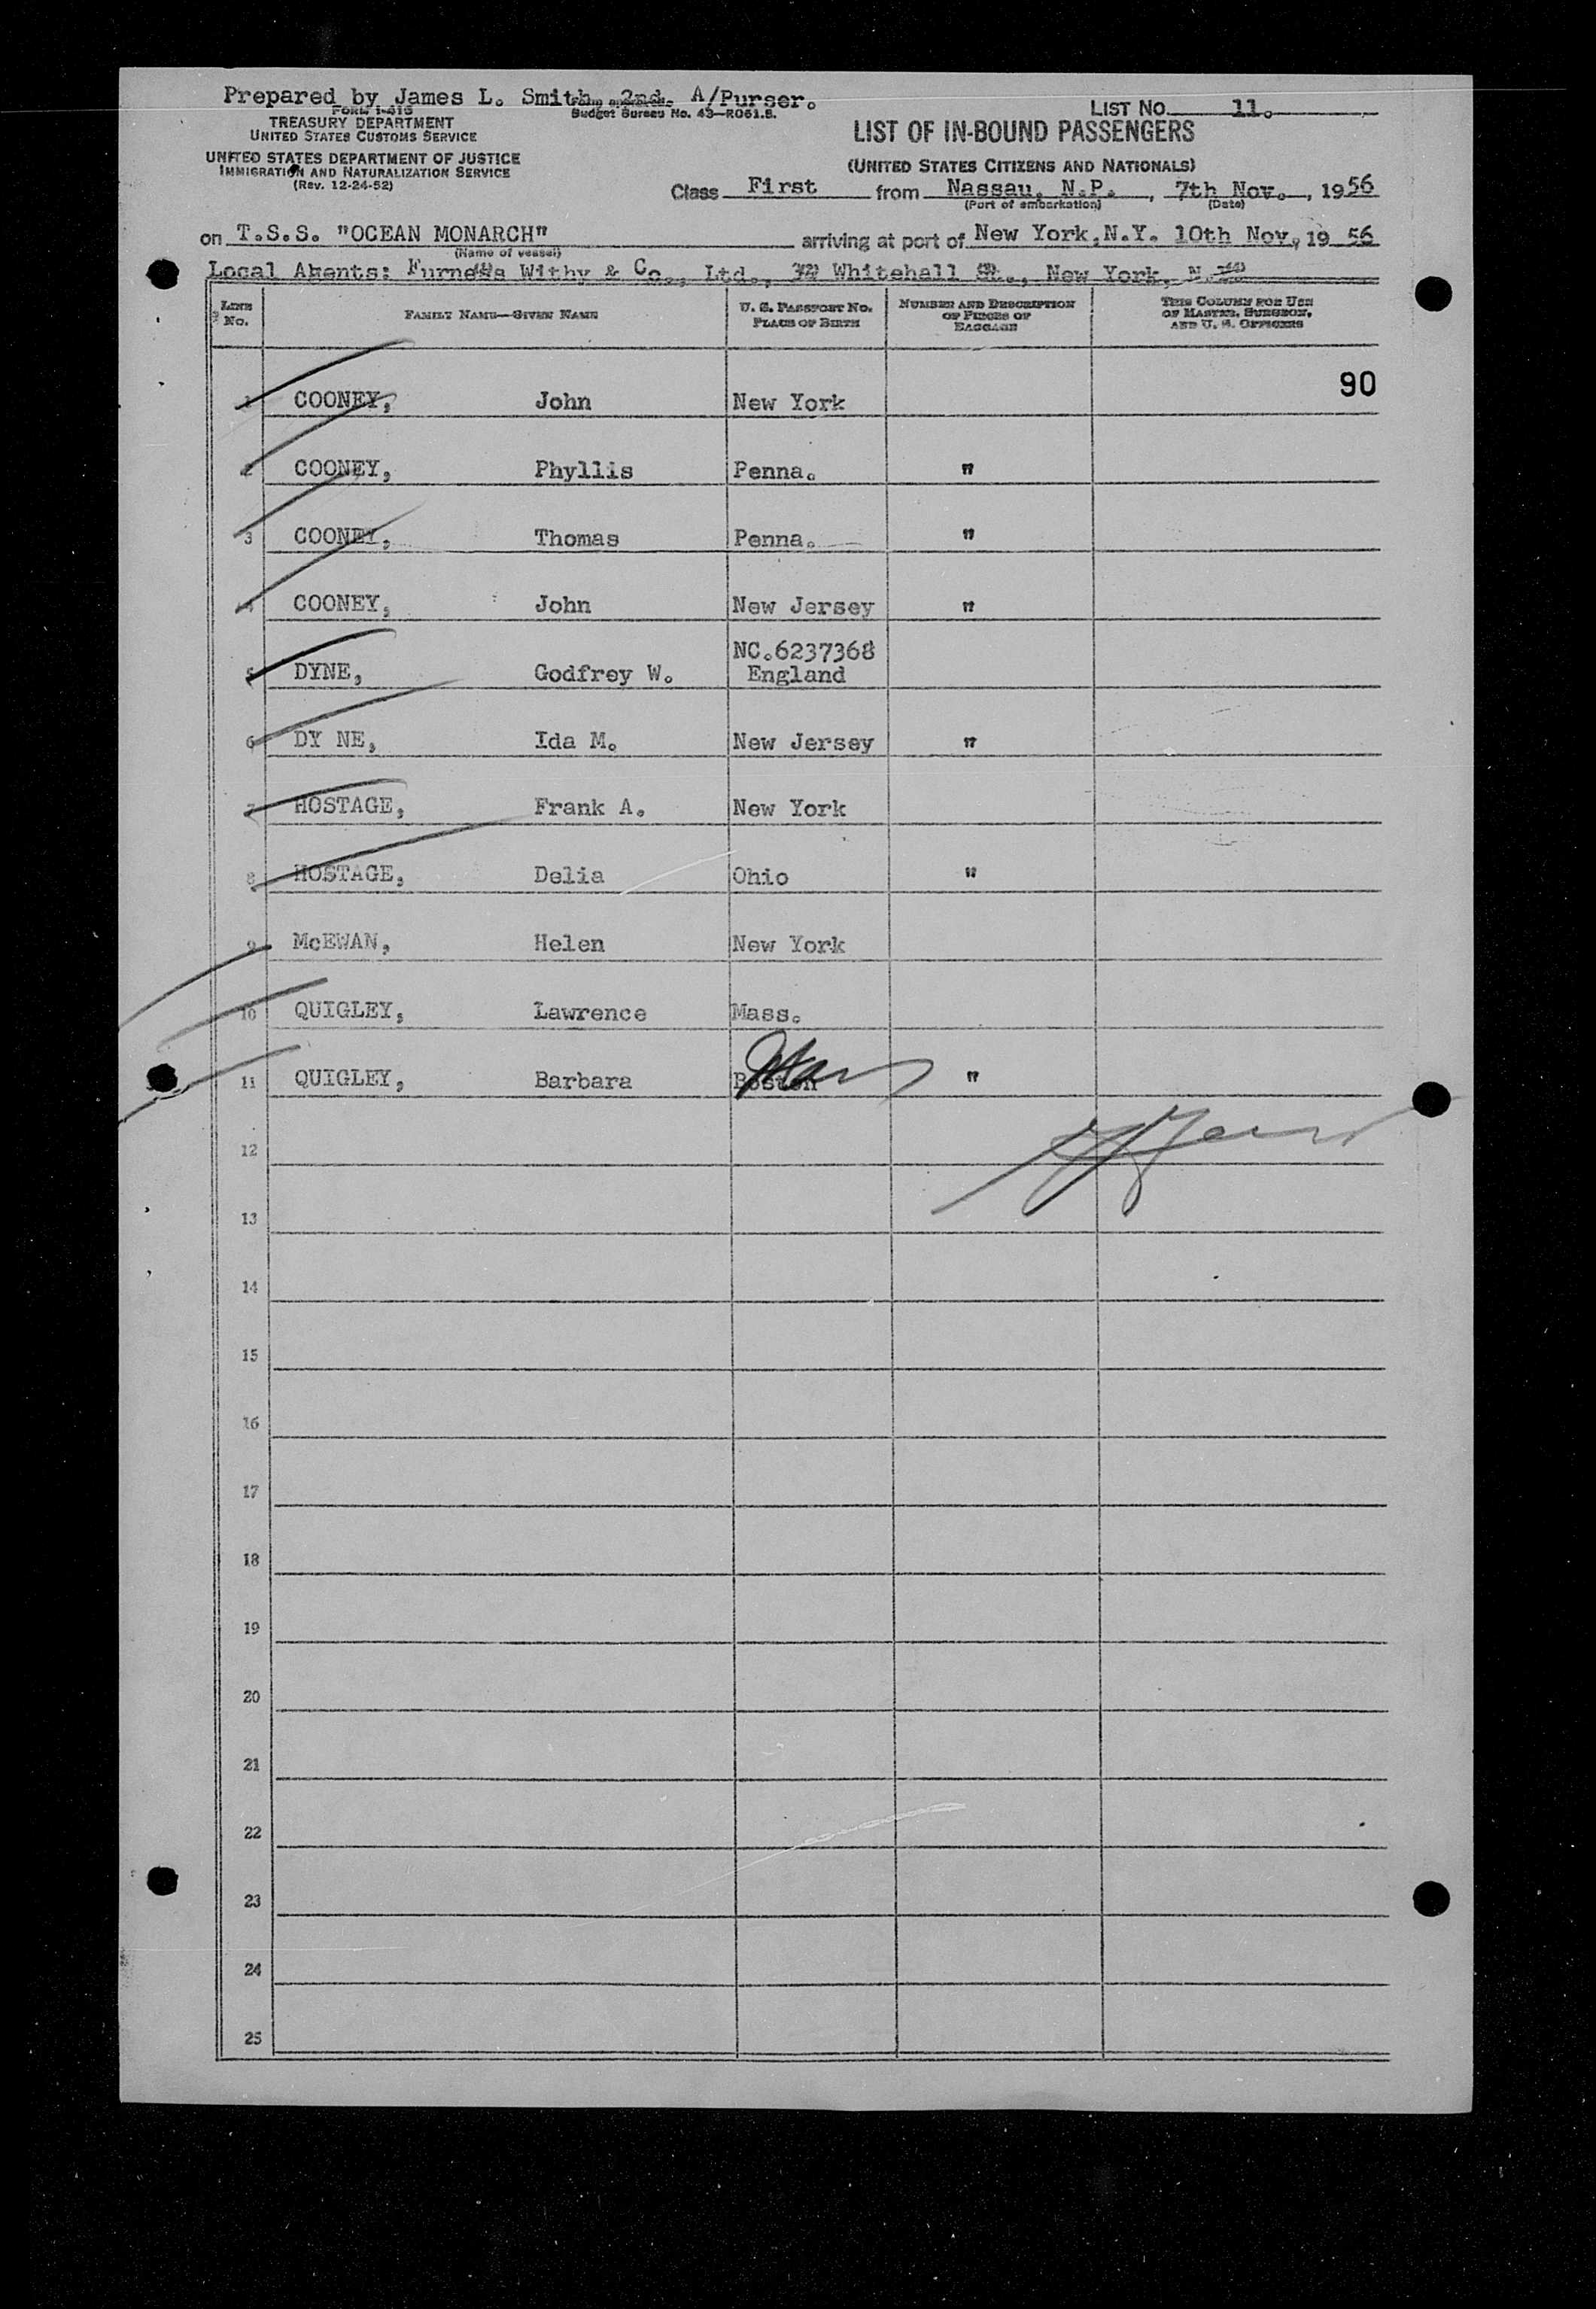 Prepared by James L. Smith, 2nd. A/Purser.
Form approved.
FORM I-415
Budget Bureau No. 43—R061.8.
LIST No. 11.
TREASURY DEPARTMENT
UNITED STATES CUSTOMS SERVICE
LIST OF IN-BOUND PASSENGERS
UNITED STATES DEPARTMENT OF JUSTICE
IMMIGRATION AND NATURALIZATION SERVICE
(Rev. 12-24-52)
(UNITED STATES CITIZENS AND NATIONALS)
Class First from Nassau, N.P., 7th Nov., 1956
(Port of embarkation) (Date)
on T.S.S. "OCEAN MONARCH" arriving at port of New York,N.Y. 10th Nov, 19 56
(Name of vessel)
Local Agents: Furness Withy & Co., Ltd., Whitehall St., New York, N.
(1) (2) (3) (4)
LINE No. FAMILY NAME—GIVEN NAME U. S. PASSPORT No. PLACE OF BIRTH NUMBER AND DESCRIPTION OF PIECES OF BAGGAGE THIS COLUMN FOR USE OF MASTER, SURGEON, AND U. S. OFFICERS
90
1 COONEY, John New York
2 COONEY, Phyllis Penna. "
3 COONEY, Thomas Penna. "
4 COONEY, John New Jersey "
NC.6237368
5 DYNE, Godfrey W. England
6 DY NE, Ida M. New Jersey "
7 HOSTAGE, Frank A. New York
8 HOSTAGE, Delia Ohio "
9 McEWAN, Helen New York
10 QUIGLEY, Lawrence Mass.
11 QUIGLEY, Barbara Boston Mass "
12
13
14
15
16
17
18
19
20
21
22
23
24
25